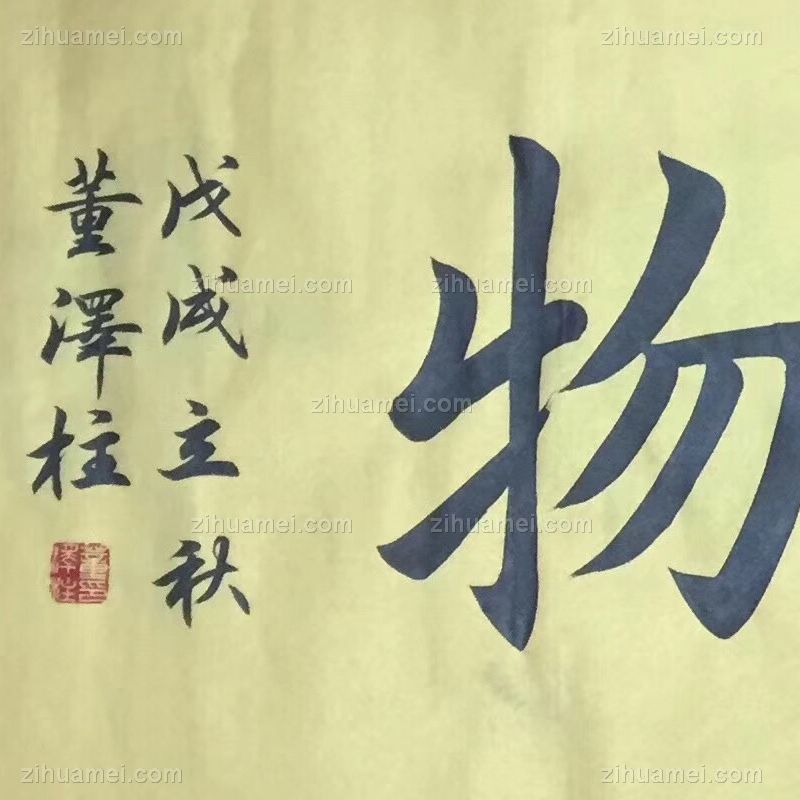 物
戊戌立秋
董澤柱
zihuamei.com
zihuamei.com
zihuamei.com
zihuamei.com
zihuamei.com
zihuamei.com
zihuamei.com
zihuamei.com
zihuamei.com